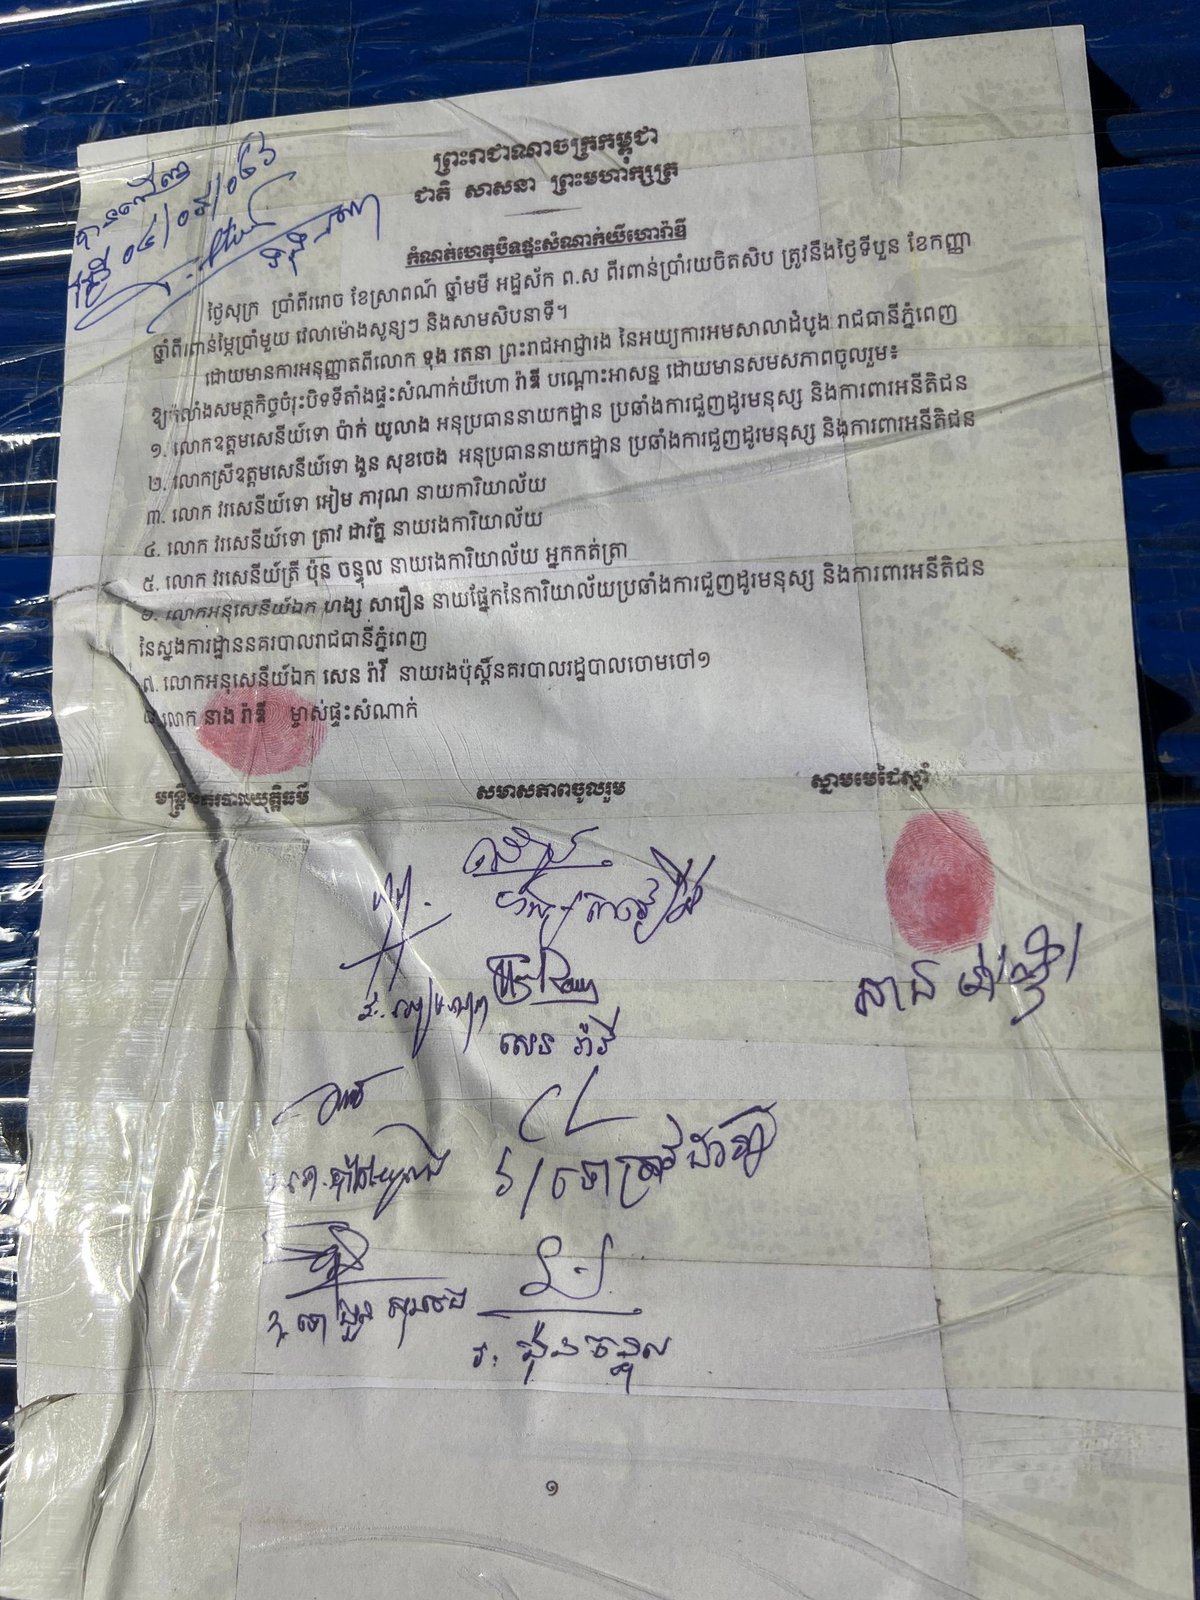 ព្រះរាជាណាចក្រកម្ពុជា
ជាតិ សាសនា ព្រះមហាក្សត្រ
បានឃើញ
០៤/០៩/០២៦
កំណត់ហេតុបិទផ្ទះសំណាក់យីហោរ៉ាឌី
ថ្ងៃសុក្រ ប្រាំពីររោច ខែស្រាពណ៍ ឆ្នាំមមី អដ្ឋស័ក ព.ស ពីរពាន់ប្រាំរយចិតសិប ត្រូវនឹងថ្ងៃទីបួន ខែកញ្ញា
ឆ្នាំពីរពាន់ម្ភៃប្រាំមួយ វេលាម៉ោងសូន្យៗ និងសាមសិបនាទី។
ដោយមានការអនុញ្ញាតពីលោក ទុង រតនា ព្រះរាជអាជ្ញារង នៃអយ្យការអមសាលាដំបូង រាជធានីភ្នំពេញ
ឱ្យកំលាំងសមត្ថកិច្ចចុះបិទទីតាំងផ្ទះសំណាក់យីហោ រ៉ាឌី បណ្តោះអាសន្ន ដោយមានសមសភាពចូលរួម៖
១. លោកឧត្តមសេនីយ៍ទោ ប៉ាក់ យូលាង អនុប្រធាននាយកដ្ឋាន ប្រឆាំងការជួញដូរមនុស្ស និងការពារអនីតិជន
២. លោកស្រីឧត្តមសេនីយ៍ទោ ងួន សុខចេង អនុប្រធាននាយកដ្ឋាន ប្រឆាំងការជួញដូរមនុស្ស និងការពារអនីតិជន
៣. លោក វរសេនីយ៍ទោ អៀម ភារុណ នាយការិយាល័យ
៤. លោក វរសេនីយ៍ទោ ត្រាវ ដារ័ត្ន នាយរងការិយាល័យ
៥. លោក វរសេនីយ៍ត្រី ប៉ុន ចន្ទុល នាយរងការិយាល័យ អ្នកកត់ត្រា
៦. លោកអនុសេនីយ៍ឯក ហង្ស សារឿន នាយផ្នែកនៃការិយាល័យប្រឆាំងការជួញដូរមនុស្ស និងការពារអនីតិជន
នៃស្នងការដ្ឋាននគរបាលរាជធានីភ្នំពេញ
៧. លោកអនុសេនីយ៍ឯក សេន រ៉ាវី នាយរងប៉ុស្តិ៍នគរបាលរដ្ឋបាលចោមចៅ១
៨. លោក នាង រ៉ាឌី ម្ចាស់ផ្ទះសំណាក់
មន្ត្រីនគរបាលយុត្តិធម៌ សមាសភាពចូលរួម ស្នាមមេដៃស្តាំ
ហង្ស សារឿន
នាង រ៉ាឌី
សេន រ៉ាវី
ទោ ត្រាវ ដារ័ត្ន
ប៉ាក់ យូលាង
ទោ ងួន សុខចេង
ប៉ុន ចន្ទុល
១